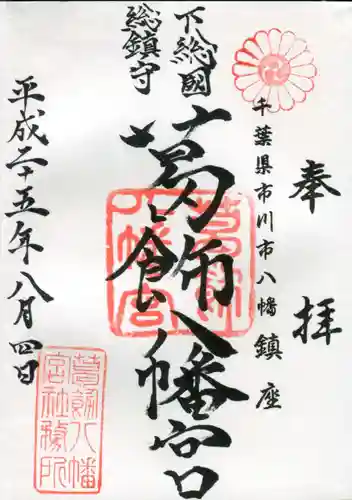 奉拝
千葉県市川市八幡鎮座
下総國
総鎮守
葛飾八幡宮
平成二十五年八月四日
葛飾八幡
宮社務所